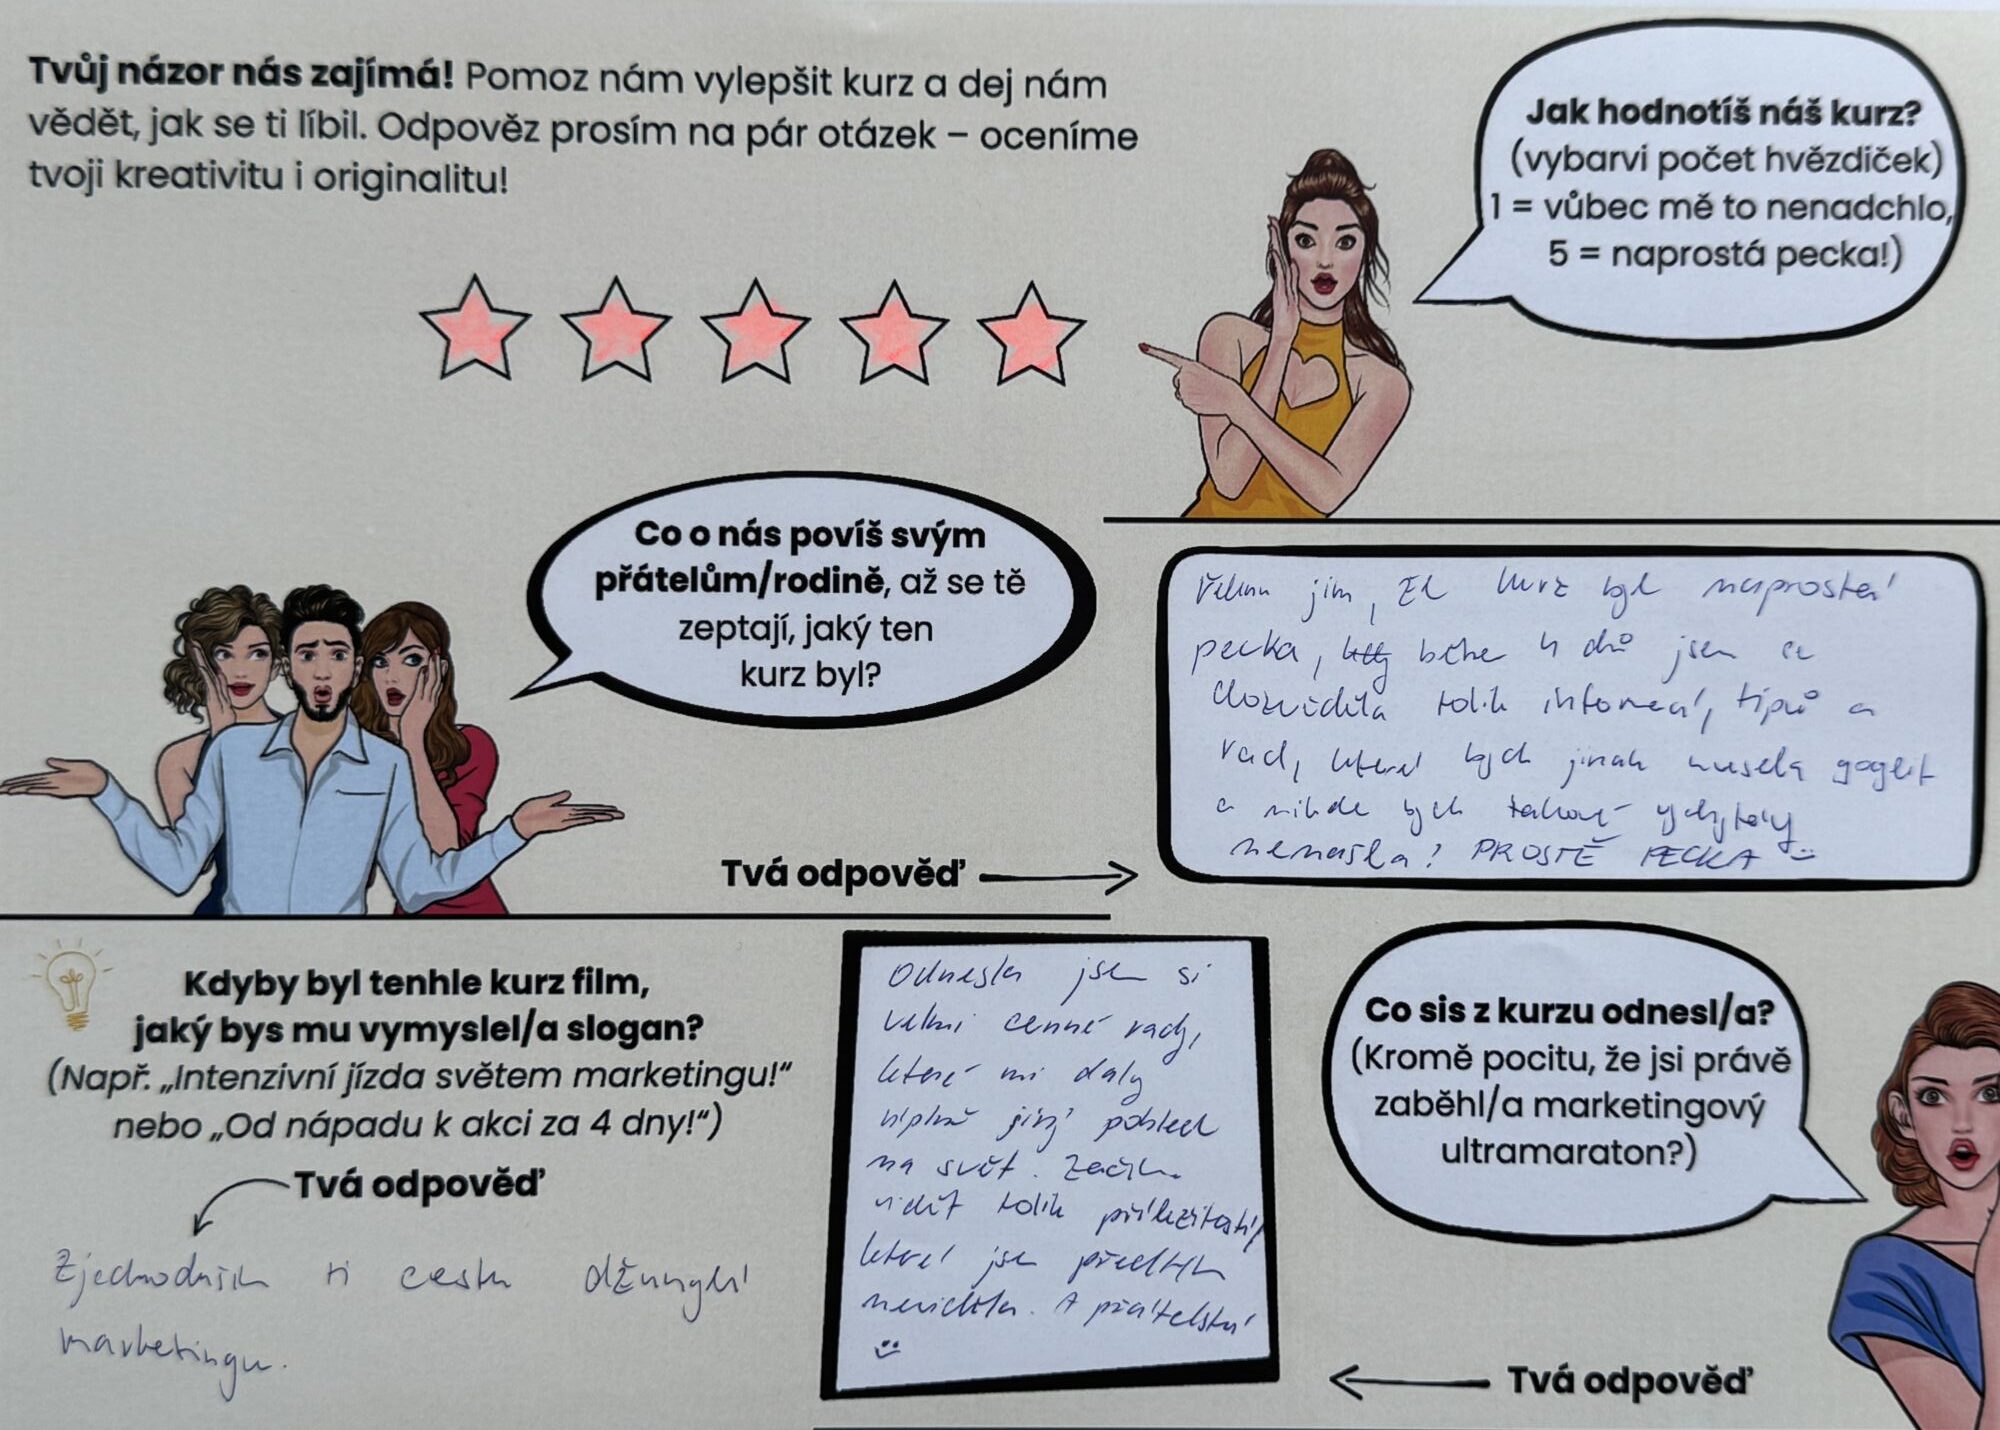 Tvůj názor nás zajímá! Pomoz nám vylepšit kurz a dej nám
vědět, jak se ti líbil. Odpověz prosím na pár otázek – oceníme
tvoji kreativitu i originalitu!
Jak hodnotíš náš kurz?
(vybarvi počet hvězdiček)
1 = vůbec mě to nenadchlo,
5 = naprostá pecka!)
Co o nás povíš svým
přátelům/rodině, až se tě
zeptají, jaký ten
kurz byl?
Tvá odpověď
jim, že kurz byl naprostá
pecka, během 4 dnů jsem se
dozvěděla tolik informací, tipů a
rad, které bych jinak musela googlit
a nikde bych takové vychytávky
nenašla! PROSTĚ PECKA
Kdyby byl tenhle kurz film,
jaký bys mu vymyslel/a slogan?
(Např. „Intenzivní jízda světem marketingu!“
nebo „Od nápadu k akci za 4 dny!“)
Tvá odpověď
Zjednoduším ti cestu džunglí
marketingu.
Odnesla jsem si
velmi cenné rady,
které mi daly
úplně jiný pohled
na svět. Začínám
vidět tolik příležitostí,
které jsem předtím
neviděla. A přátelství
Co sis z kurzu odnesl/a?
(Kromě pocitu, že jsi právě
zaběhl/a marketingový
ultramaraton?)
Tvá odpověď